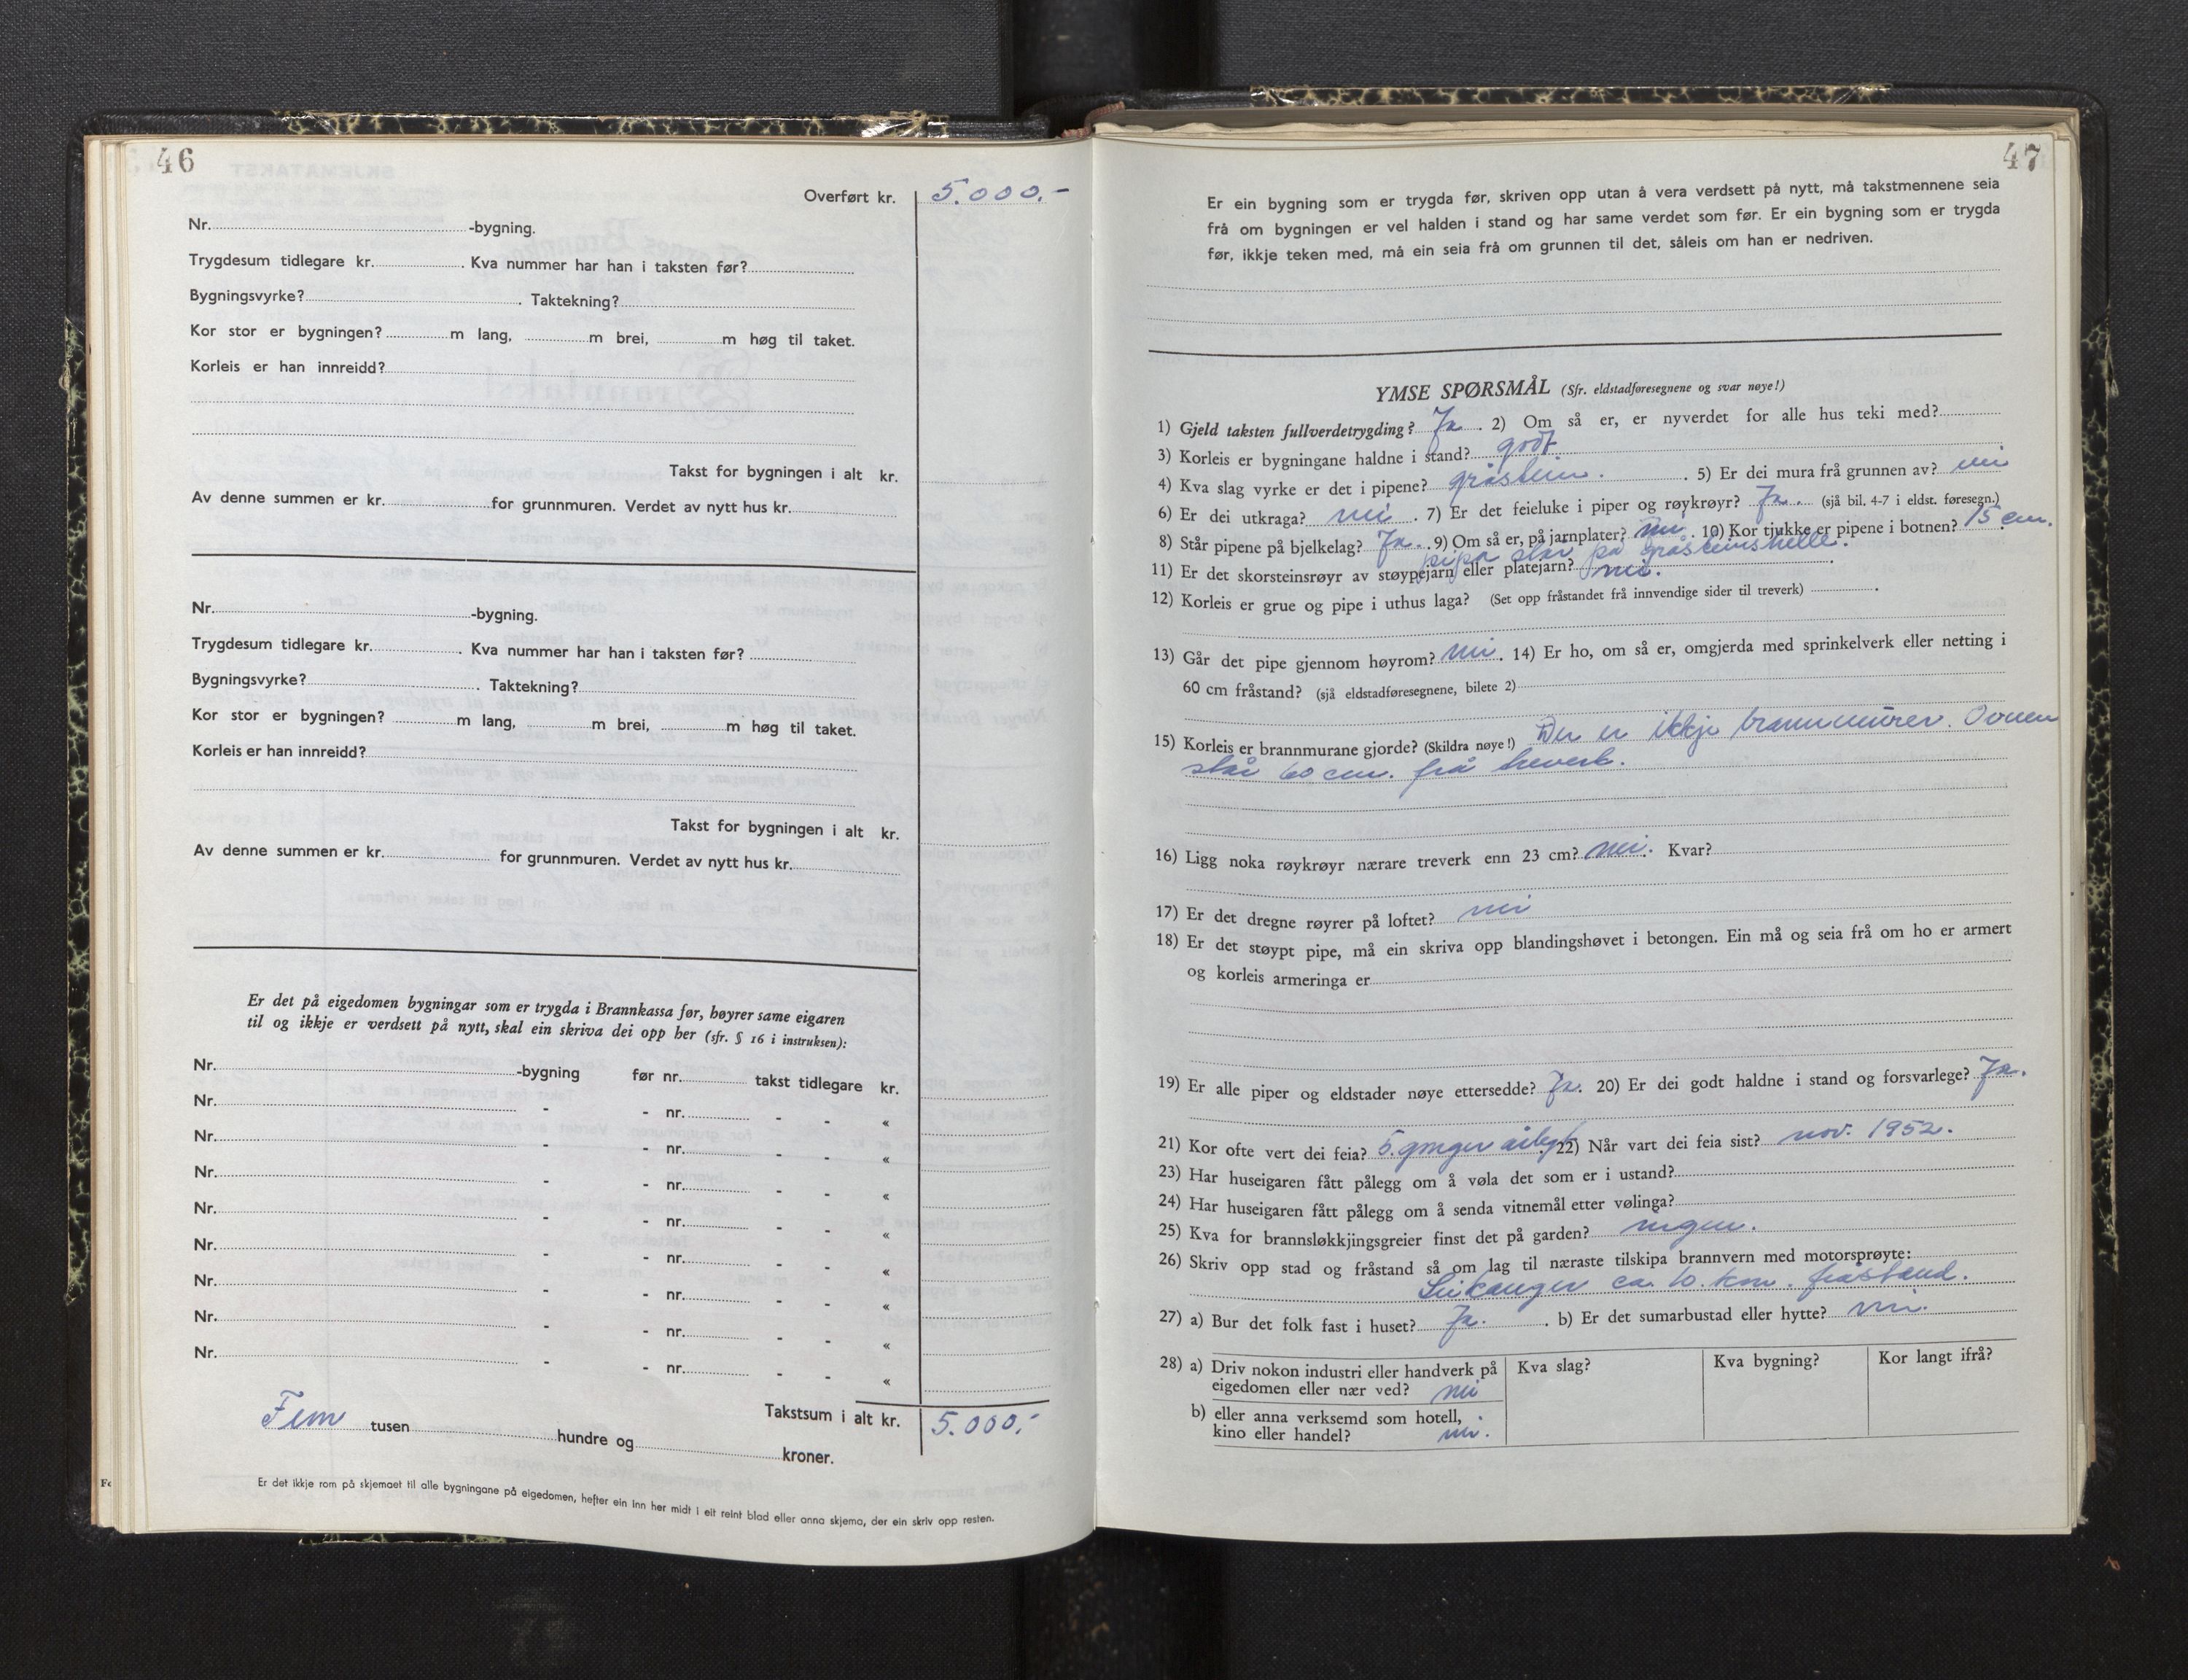 46
Overført kr. 5.000.-
Nr. -bygning.
Trygdesum tidlegare kr. . Kva nummer har han i taksten før?
Bygningsvyrke? . Taktekning?
Kor stor er bygningen? m lang, m brei, m høg til taket.
Korleis er han innreidd?
Takst for bygningen i alt kr.
Av denne summen er kr. for grunnmuren. Verdet av nytt hus kr.
Nr. -bygning.
Trygdesum tidlegare kr. . Kva nummer har han i taksten før?
Bygningsvyrke? . Taktekning?
Kor stor er bygningen? m lang, m brei, m høg til taket.
Korleis er han innreidd?
Takst for bygningen i alt kr.
Av denne summen er kr. for grunnmuren. Verdet av nytt hus kr.
Er det på eigedomen bygningar som er trygda i Brannkassa før, høyrer same eigaren
til og ikkje er verdsett på nytt, skal ein skriva dei opp her (sfr. § 16 i instruksen):
Nr. -bygning før nr. takst tidlegare kr.
Nr. - - nr. - - «
Nr. - - nr. - - «
Nr. - - nr. - - «
Nr. - - nr. - - «
Nr. - - nr. - - «
Nr. - - nr. - - «
Nr. - - nr. - - «
Nr. - - nr. - - «
Takstsum i alt kr. 5.000.-
Fem tusen hundre og kroner.
Er det ikkje rom på skjemaet til alle bygningane på eigedomen, hefter ein inn her midt i eit reint blad eller anna skjema, der ein skriv opp resten.
47
Er ein bygning som er trygda før, skriven opp utan å vera verdsett på nytt, må takstmennene seia
frå om bygningen er vel halden i stand og har same verdet som før. Er ein bygning som er trygda
før, ikkje teken med, må ein seia frå om grunnen til det, såleis om han er nedriven.
YMSE SPØRSMÅL (Sfr. eldstadføresegnene og svar nøye!)
1) Gjeld taksten fullverdetrygding? Ja . 2) Om så er, er nyverdet for alle hus teki med?
3) Korleis er bygningane haldne i stand? godt
4) Kva slag vyrke er det i pipene? gråstein. . 5) Er dei mura frå grunnen av? nei
6) Er dei utkraga? nei . 7) Er det feieluke i piper og røykrøyr? Ja. (sjå bil. 4-7 i eldst. føresegn.)
8) Står pipene på bjelkelag? Ja. . 9) Om så er, på jarnplater? nei . 10) Kor tjukke er pipene i botnen? 15 cm.
pipa står på gråsteinshelle.
11) Er det skorsteinsrøyr av støypejarn eller platejarn? nei.
12) Korleis er grue og pipe i uthus laga? (Set opp fråstandet frå innvendige sider til treverk) .
13) Går det pipe gjennom høyrom? nei . 14) Er ho, om så er, omgjerda med sprinkelverk eller netting i
60 cm fråstand? (sjå eldstadføresegnene, bilete 2)
15) Korleis er brannmurane gjorde? (Skildra nøye!) Der er ikkje brannmurer. Ovnen
står 60 cm. frå treverk.
16) Ligg noka røykrøyr nærare treverk enn 23 cm? nei. Kvar?
17) Er det dregne røyrer på loftet? nei
18) Er det støypt pipe, må ein skriva opp blandingshøvet i betongen. Ein må og seia frå om ho er armert
og korleis armeringa er
19) Er alle piper og eldstader nøye ettersedde? Ja. 20) Er dei godt haldne i stand og forsvarlege? Ja.
21) Kor ofte vert dei feia? 5. gonger årlegt. 22) Når vart dei feia sist? nov. 1952.
23) Har huseigaren fått pålegg om å vøla det som er i ustand?
24) Har huseigaren fått pålegg om å senda vitnemål etter vølinga?
25) Kva for brannsløkkjingsgreier finst det på garden? ingen.
26) Skriv opp stad og fråstand så om lag til næraste tilskipa brannvern med motorsprøyte:
Leikanger ca. 10. km. fråstand.
27) a) Bur det folk fast i huset? Ja. . b) Er det sumarbustad eller hytte? nei.
28) a) Driv nokon industri eller handverk på
eigedomen eller nær ved? nei
Kva slag? Kva bygning? Kor langt ifrå?
b) eller anna verksemd som hotell,
kino eller handel? nei.